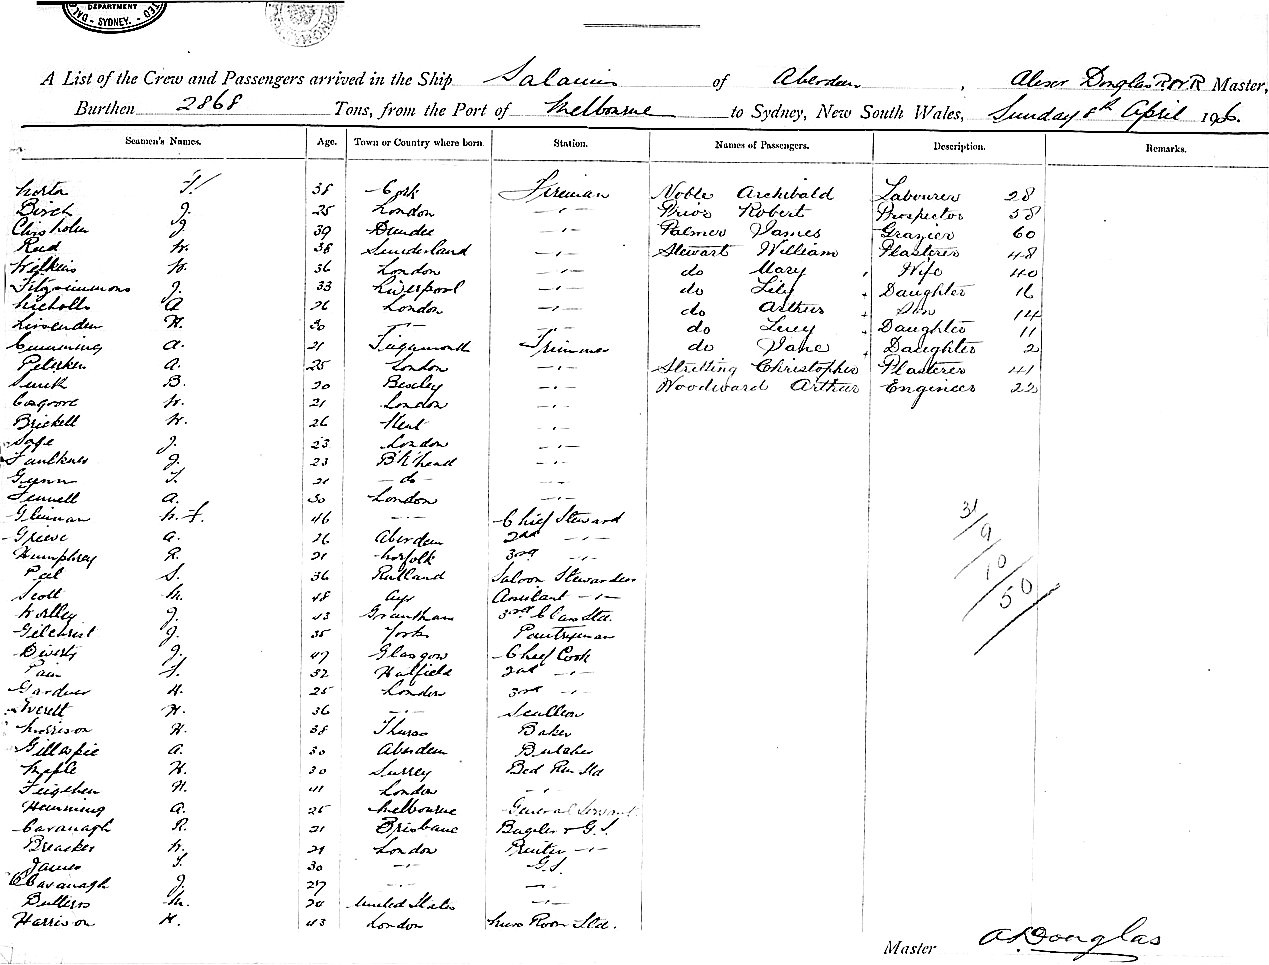 DEPARTMENT
SYDNEY.
A List of the Crew and Passengers arrived in the Ship Salamis of Aberdeen, Alexr Douglas R.N.R Master,
Burthen 2868 Tons, from the Port of Melbourne to Sydney, New South Wales, Sunday 8th April 1906.
Seamen's Names. Age. Town or Country where born. Station. Names of Passengers. Description. Remarks.
38 Cork Fireman Noble Archibald Labourer 28
Birch J. 25 London —"— Prior Robert Prospector 58
Chisholm J 39 Dundee —"— Palmer James Grazier 60
Reid W. 38 Sunderland —"— Stewart William Plasterer 48
Wilkins W. 36 London —"— do Mary Wife 40
Fitzsimmons J. 33 Liverpool —"— do Lily Daughter 16
Nicholls A 26 London —"— do Arthur Son 14
H. 30 —"— —"— do Lucy Daughter 11
Cumming A. 21 Trimmer do Jane Daughter 2
A. 25 London —"— Christopher Plasterer 41
B. 20 Bexley —"— Woodward Arthur Engineer 22
Cosgrove W. 21 London —"—
Brickell W. 26 Kent —"—
J. 23 London —"—
Faulkner J. 23 B'k'head —"—
Gunn T. 21 — do — —"—
Fennell A. 30 London —"—
46 —"— Chief Steward
Grieve A. 26 Aberdeen 2nd —"—
Humphrey R. 21 Norfolk 3rd —"—
Peel S. 36 Rutland Saloon Stewardess
Scott M. 48 Ayr Assistant —"—
J. 43 Grantham 3rd Class Std.
Gilchrist J. 35 York Pantryman
J. 47 Glasgow Chief Cook
32 Hatfield 2nd —"—
Gardner H. 25 London 3rd —"—
Everett H. 36 —"— Scullion
Morrison H. 38 Thurso Baker
Gillespie A. 30 Aberdeen Butcher
H. 30 Surrey Bed Rm Std
H. 41 London —"—
Henning A. 25 Melbourne General Servant
Cavanagh R. 21 Brisbane Bugler & G.S.
W. 21 London Printer —"—
James T. 30 —"— G.S.
Cavanagh J. 27 —"— —"—
M. 20 United States —"—
Harrison H. 43 London Mess Room Std.
31/9/10/50
Master A Douglas